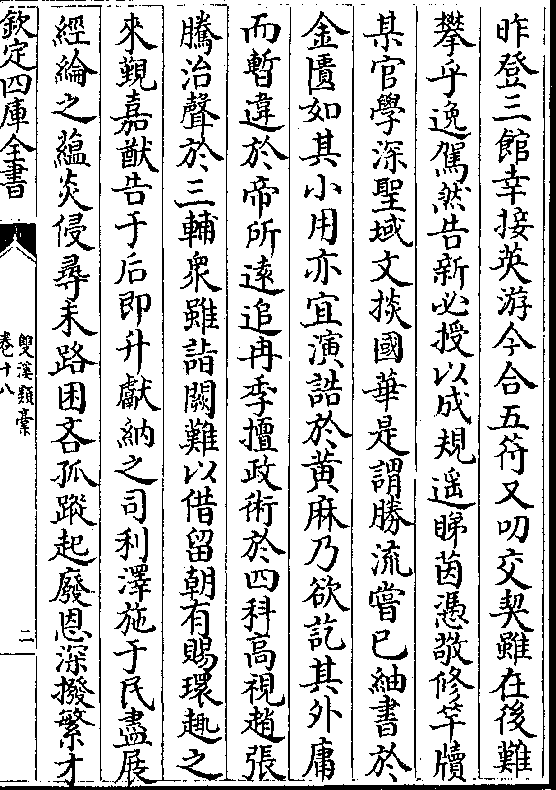 昨登三館幸接英游今合五符又叨交契雖在後難
攀乎逸駕然告新必授以成規遥睇茵慿敬修竿牘
某官學深聖域文掞國華是謂勝流嘗已紬書於
金匱如其小用亦宜演誥於黄麻乃欲訖其外庸
而暫違於帝所逺追冉季擅政術於四科高視趙張
騰治聲於三輔衆雖詣闕難以借留朝有賜環趣之
來覲嘉猷告于后即升獻納之司利澤施于民盡展
經綸之藴炎侵尋耒路困吝孤蹤起廢恩深撥繁才
欽定四庫全書
雙溪類稾
卷十八
二